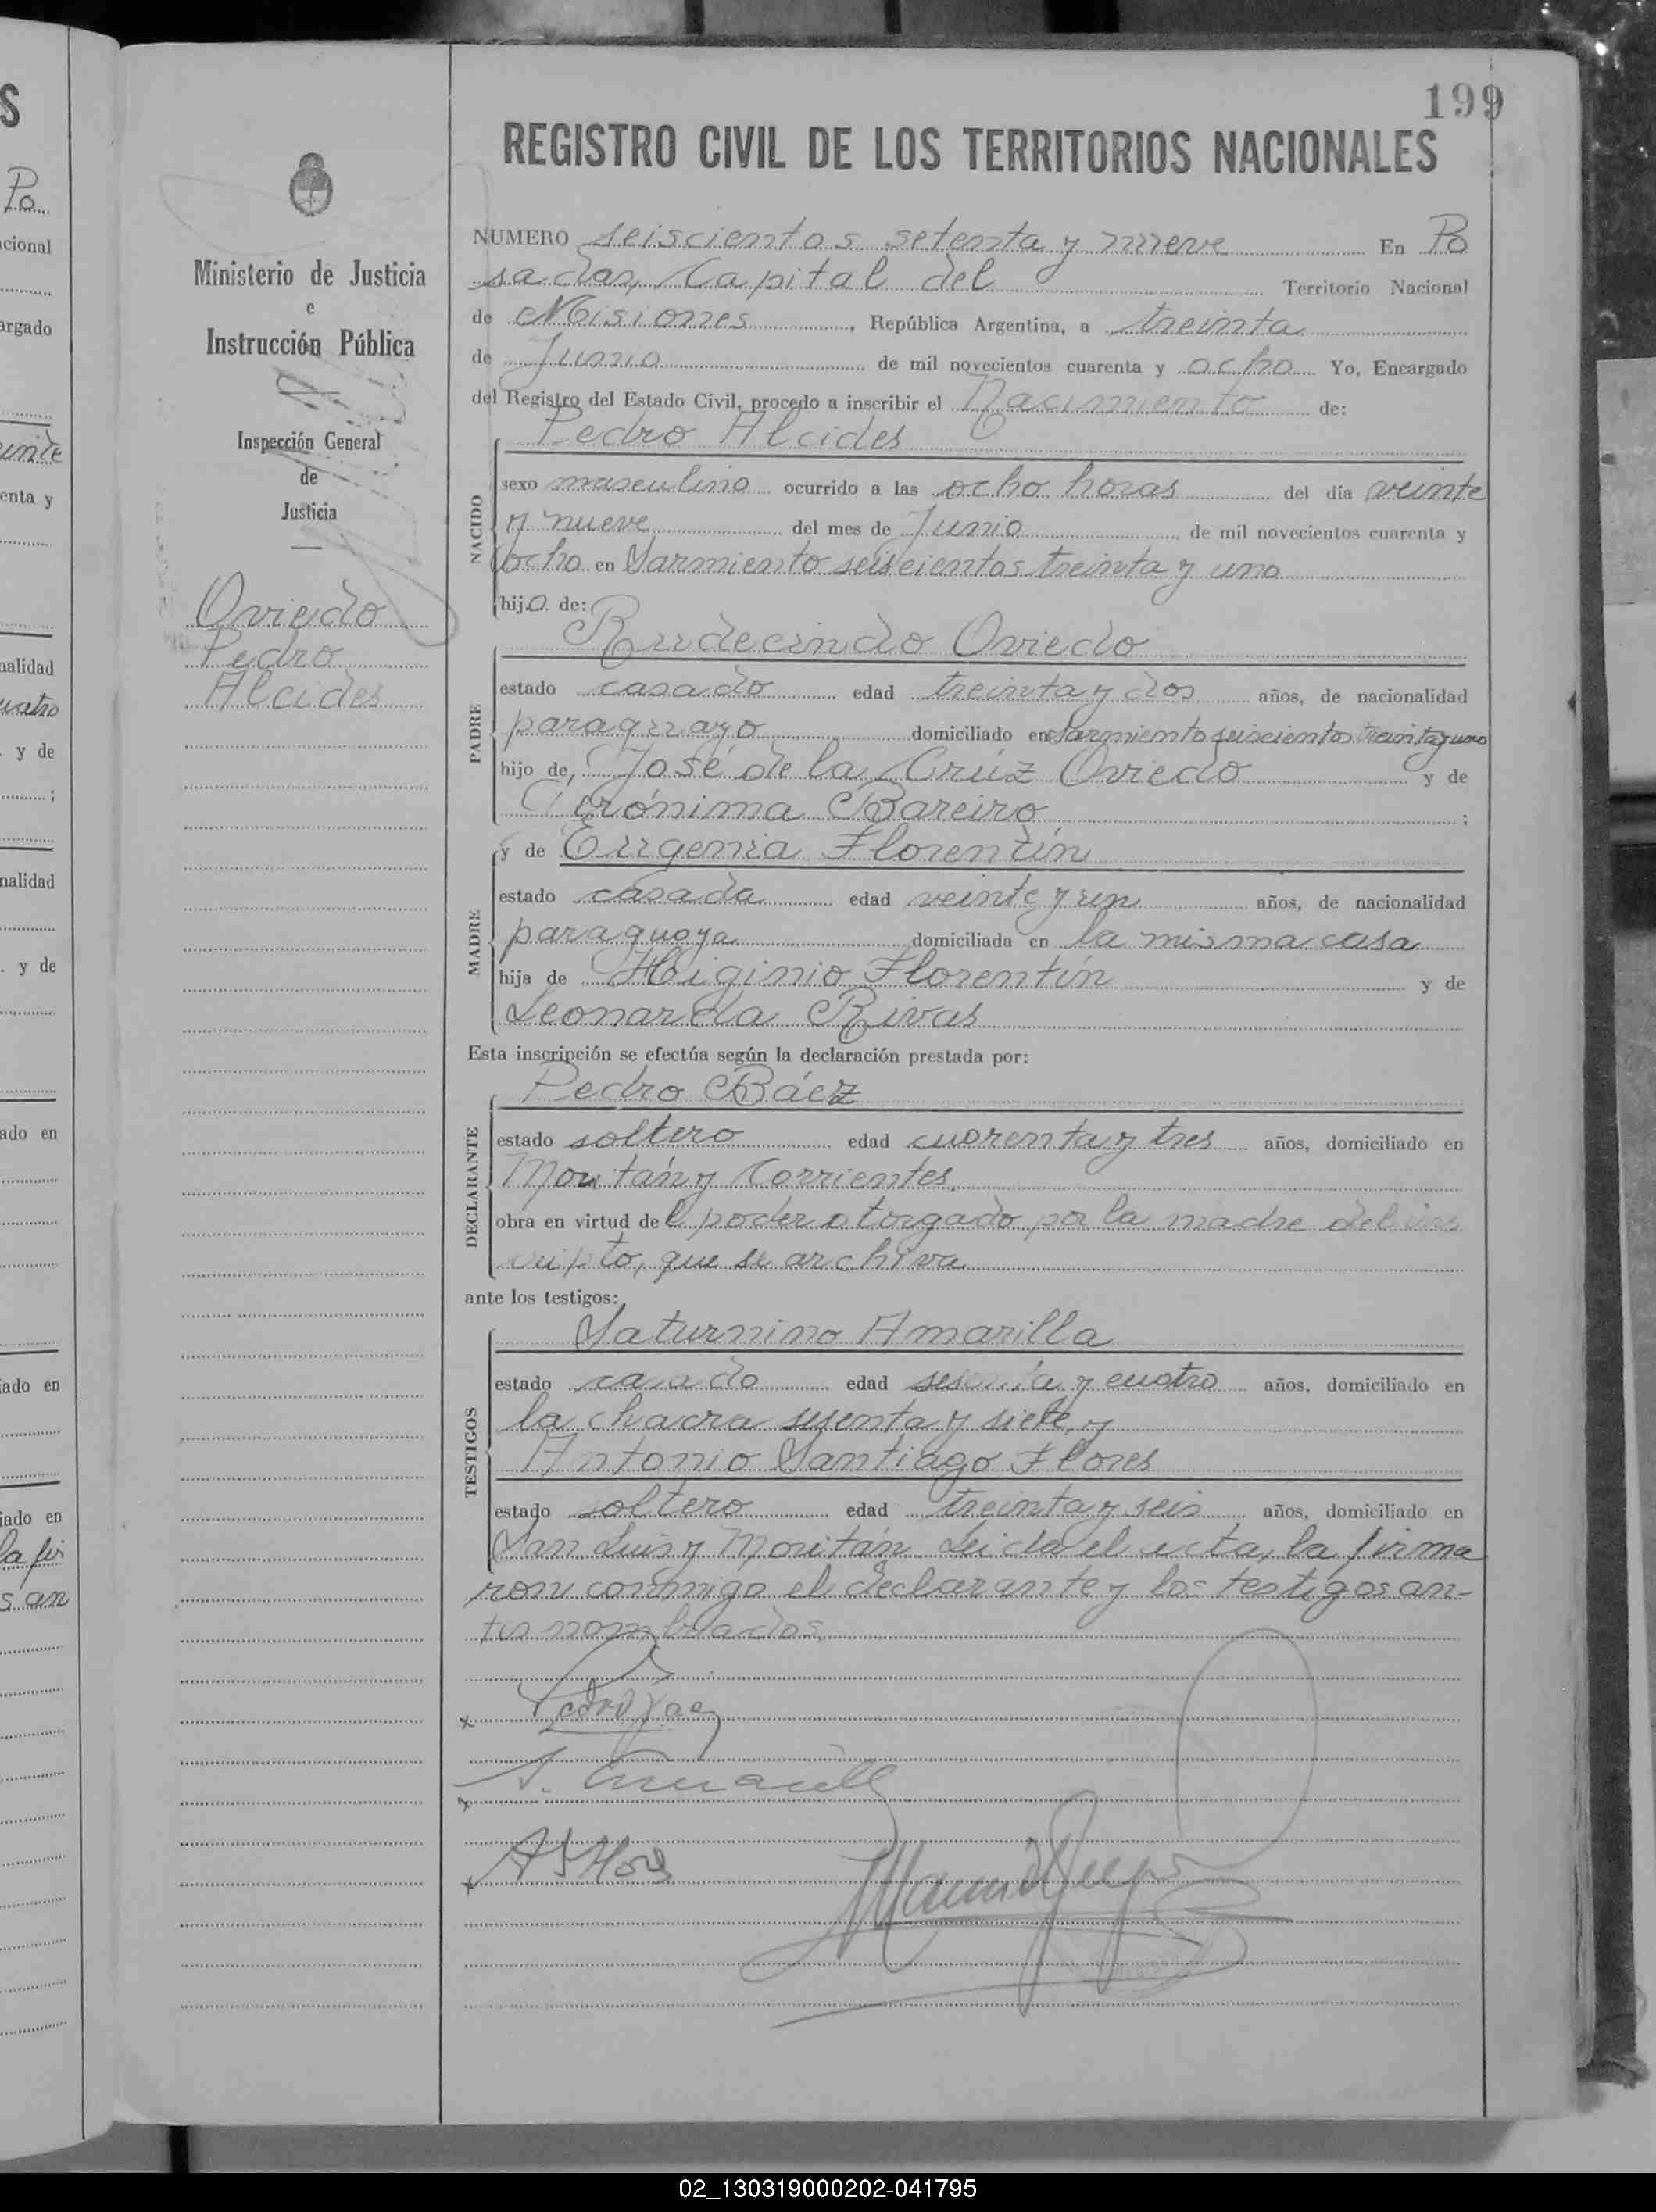 199
REGISTRO CIVIL DE LOS TERRITORIOS NACIONALES
Ministerio de Justicia
e
Instrucción Pública
Inspección General
de
Justicia
Oviedo
Pedro
Alcides
NUMERO seiscientos setenta y nueve En Po
sadas, Capital del Territorio Nacional
de Misiones, República Argentina, a treinta
de Junio de mil novecientos cuarenta y ocho Yo, Encargado
del Registro del Estado Civil, procedo a inscribir el Nacimiento de:
Pedro Alcides
NACIDO
sexo masculino ocurrido a las ocho horas del día veinte
y nueve del mes de Junio de mil novecientos cuarenta y
ocho en Sarmiento seiscientos treinta y uno
hijo de:
Rudecindo Oviedo
PADRE
estado casado edad treinta y dos años, de nacionalidad
paraguayo domiciliado en Sarmiento seiscientos treinta y uno
hijo de, José de la Crúz Oviedo y de
Gerónima Bareiro ;
y de Eugenia Florentín
MADRE
estado casada edad veinte y un años, de nacionalidad
paraguaya domiciliada en la misma casa
hija de Higinio Florentín y de
Leonarda Rivas
Esta inscripción se efectúa según la declaración prestada por:
Pedro Báez
DECLARANTE
estado soltero edad cuarenta y tres años, domiciliado en
Moritán y Corrientes.
obra en virtud del poder otorgado por la madre del ins
cripto, que se archiva
ante los testigos:
Saturnino Amarilla
TESTIGOS
estado casado edad sesenta y cuatro años, domiciliado en
la chacra sesenta y siete, y
Antonio Santiago Flores
estado soltero edad treinta y seis años, domiciliado en
San Luis y Moritán. Leida el acta, la firma
ron conmigo el declarante y los testigos an-
tes nombrados.
Pedro Baez
S. Amarilla
A S Flores
02_130319000202-041795